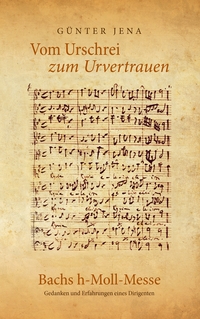 GÜNTER JENA
Vom Urschrei
zum Urvertrauen
Bachs h-Moll-Messe
Gedanken und Erfahrungen eines Dirigenten